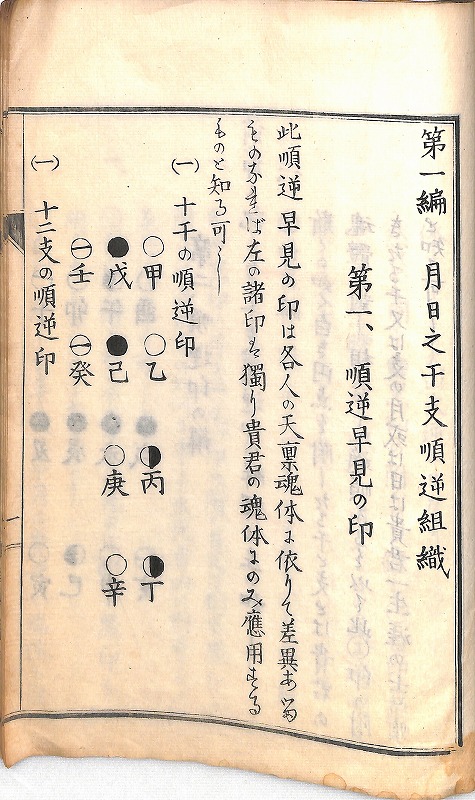 第一編 月日之干支順逆組織
第一、 順逆早見の印
此順逆早見の印は各人の天禀魂体に依りて差異ある
ものなれば左の諸印は獨り貴君の魂体にのみ應用する
ものと知る可し
(一) 十干の順逆印
○甲 ○乙 ◑丙 ◑丁
●戊 ●己 ○庚 ○辛
⊖壬 ⊖癸
(一) 十二支の順逆印